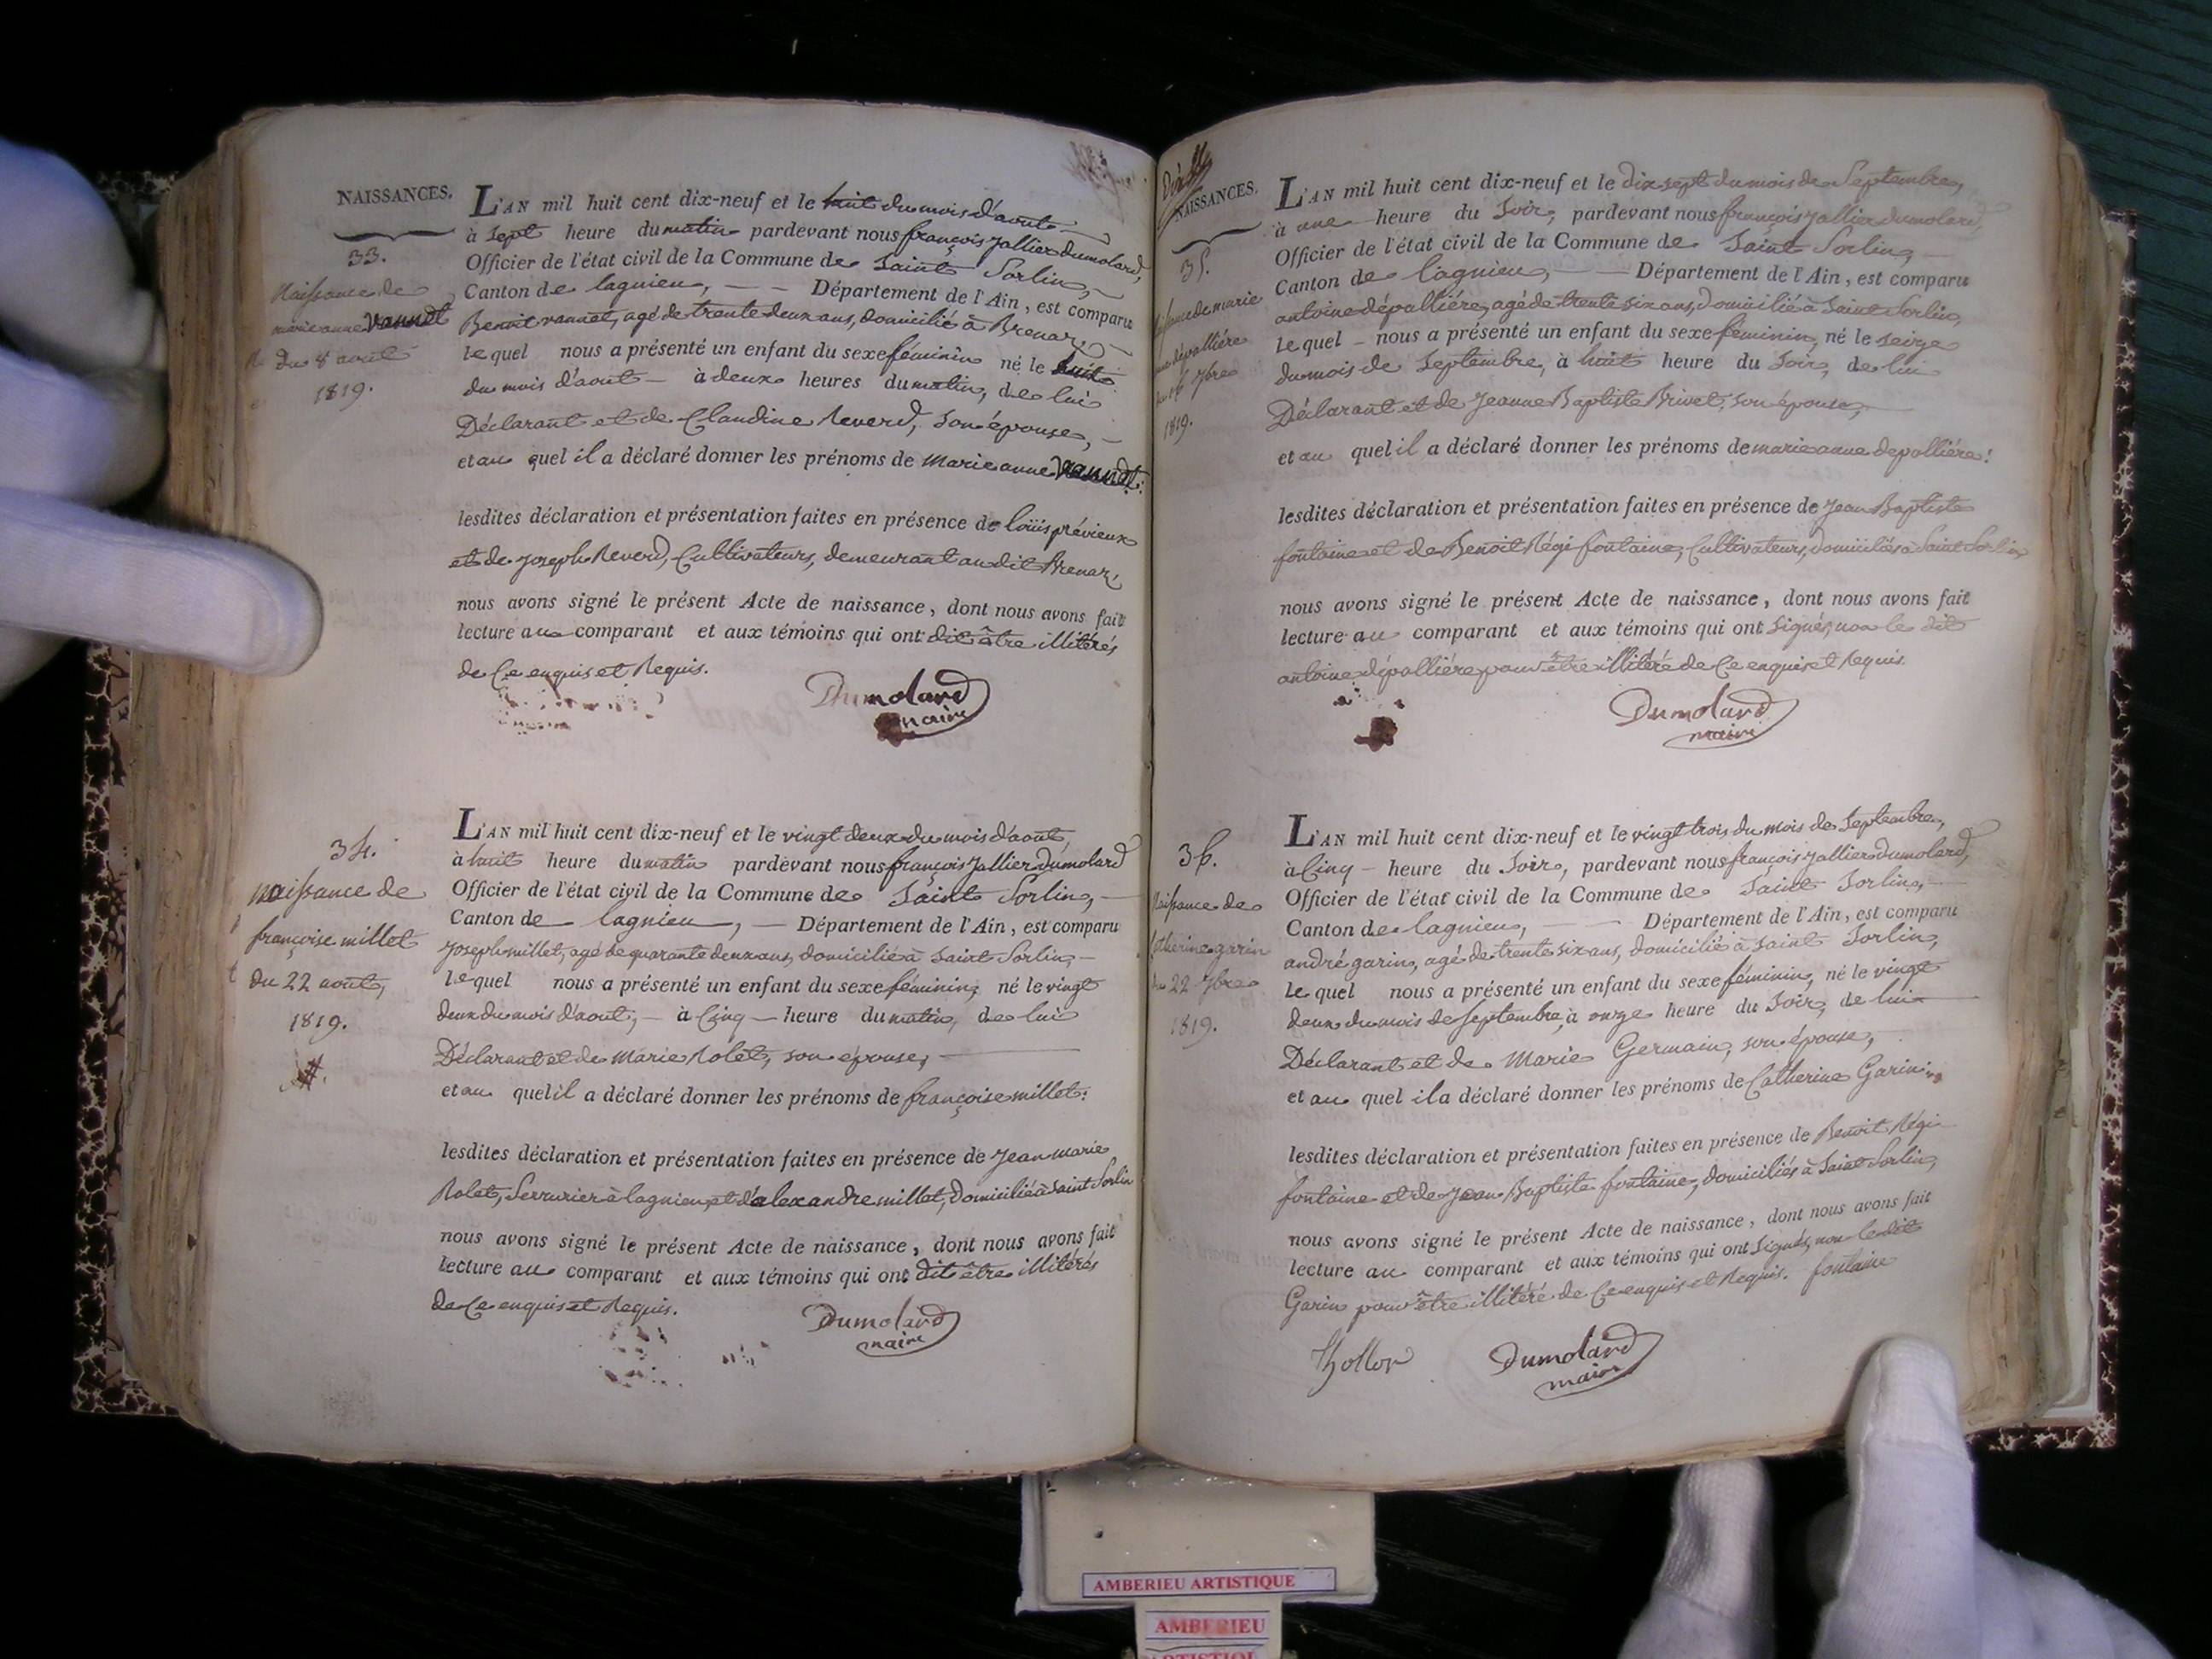 NAISSANCES.
33.
Naissance de
marie anne vannet
du 8 août
1819.
L'AN mil huit cent dix-neuf et le huit du mois d'août
à Sept heure du matin pardevant nous françois jallier dumolard,
Officier de l'état civil de la Commune de Saint Sorlin,
Canton de lagnieu, Département de l'Ain, est comparu
Benoit vannet, agé de trente deux ans, domicilié à Brenaz
lequel nous a présenté un enfant du sexe féminin né, le huit
du mois d'aout à deux heures du matin, de lui
Déclarant et de Claudine Reverd, son épouse,
et au quel il a déclaré donner les prénoms de Marie anne vannet:
lesdites déclaration et présentation faites en présence de loüis prévieux
et de joseph Reverd, Cultivateurs, demeurant audit Brenaz,
nous avons signé le présent Acte de naissance, dont nous avons fait
lecture au comparant et aux témoins qui ont dit être illitérés
de Ce enquis et Requis.
Dumolard
maire
34.
naissance de
françoise millet
du 22 août,
1819.
L'AN mil huit cent dix-neuf et le vingt deux du mois d'aout,
à huit heure du matin pardevant nous françois jallier dumolard
Officier de l'état civil de la Commune de Saint Sorlin,
Canton de lagnieu, Département de l'Ain, est comparu
joseph millet, agé de quarante deux ans, domicilié à Saint Sorlin,
lequel nous a présenté un enfant du sexe féminin, né le vingt
deux du mois d'aout, à Cinq heure du matin, de lui
Déclarant et de Marie Rolet, son épouse,
et au quel il a déclaré donner les prénoms de françoise millet:
lesdites déclaration et présentation faites en présence de jean marie
Rolet, Serrurier à lagnieu, et d'alexandre millet, domicilié à Saint Sorlin
nous avons signé le présent Acte de naissance, dont nous avons fait
lecture au comparant et aux témoins qui ont dit être illitérés
de Ce enquis et Requis.
Dumolard
maire
NAISSANCES.
35.
marie
dépollière
7bre
1819.
L'AN mil huit cent dix-neuf et le dix sept du mois de Septembre,
à une heure du Soir, pardevant nous françois jallier dumolard,
Officier de l'état civil de la Commune de Saint Sorlin,
Canton de lagnieu, Département de l'Ain, est comparu
antoine dépollière, agé de trente six ans, domicilié à Saint Sorlin,
lequel nous a présenté un enfant du sexe féminin, né le seize
du mois de Septembre, à huit heure du Soir, de lui
Déclarant et de jeanne Baptiste Brivet, son épouse,
et au quel il a déclaré donner les prénoms de marie anne depollière:
lesdites déclaration et présentation faites en présence de jean Baptiste
fontaine et de Benoit Régi fontaine, Cultivateurs, domiciliés à Saint Sorlin
nous avons signé le présent Acte de naissance, dont nous avons fait
lecture au comparant et aux témoins qui ont signés, non le dit
antoine dépollière pour être illitéré de Ce enquis et Requis.
Dumolard
maire
36.
Naissance de
Catherine garin
du 22 7bre
1819.
L'AN mil huit cent dix-neuf et le vingt trois du mois de Septembre,
à Cinq heure du Soir, pardevant nous françois jallier dumolard,
Officier de l'état civil de la Commune de Saint Sorlin,
Canton de lagnieu, Département de l'Ain, est comparu
andré garin, agé de trente six ans, domicilié à Saint Sorlin,
lequel nous a présenté un enfant du sexe féminin, né le vingt
deux du mois de Septembre, à onze heure du Soir, de lui
Déclarant et de Marie Germain, son épouse,
et au quel il a déclaré donner les prénoms de Catherine Garin
lesdites déclaration et présentation faites en présence de Benoit Régi
fontaine et de jean Baptiste fontaine, domiciliés à Saint Sorlin,
nous avons signé le présent Acte de naissance, dont nous avons fait
lecture au comparant et aux témoins qui ont signés, non le dit
Garin pour être illitéré de Ce enquis et Requis. fontaine
Dumolard
maire
AMBERIEU ARTISTIQUE
AMBERIEU